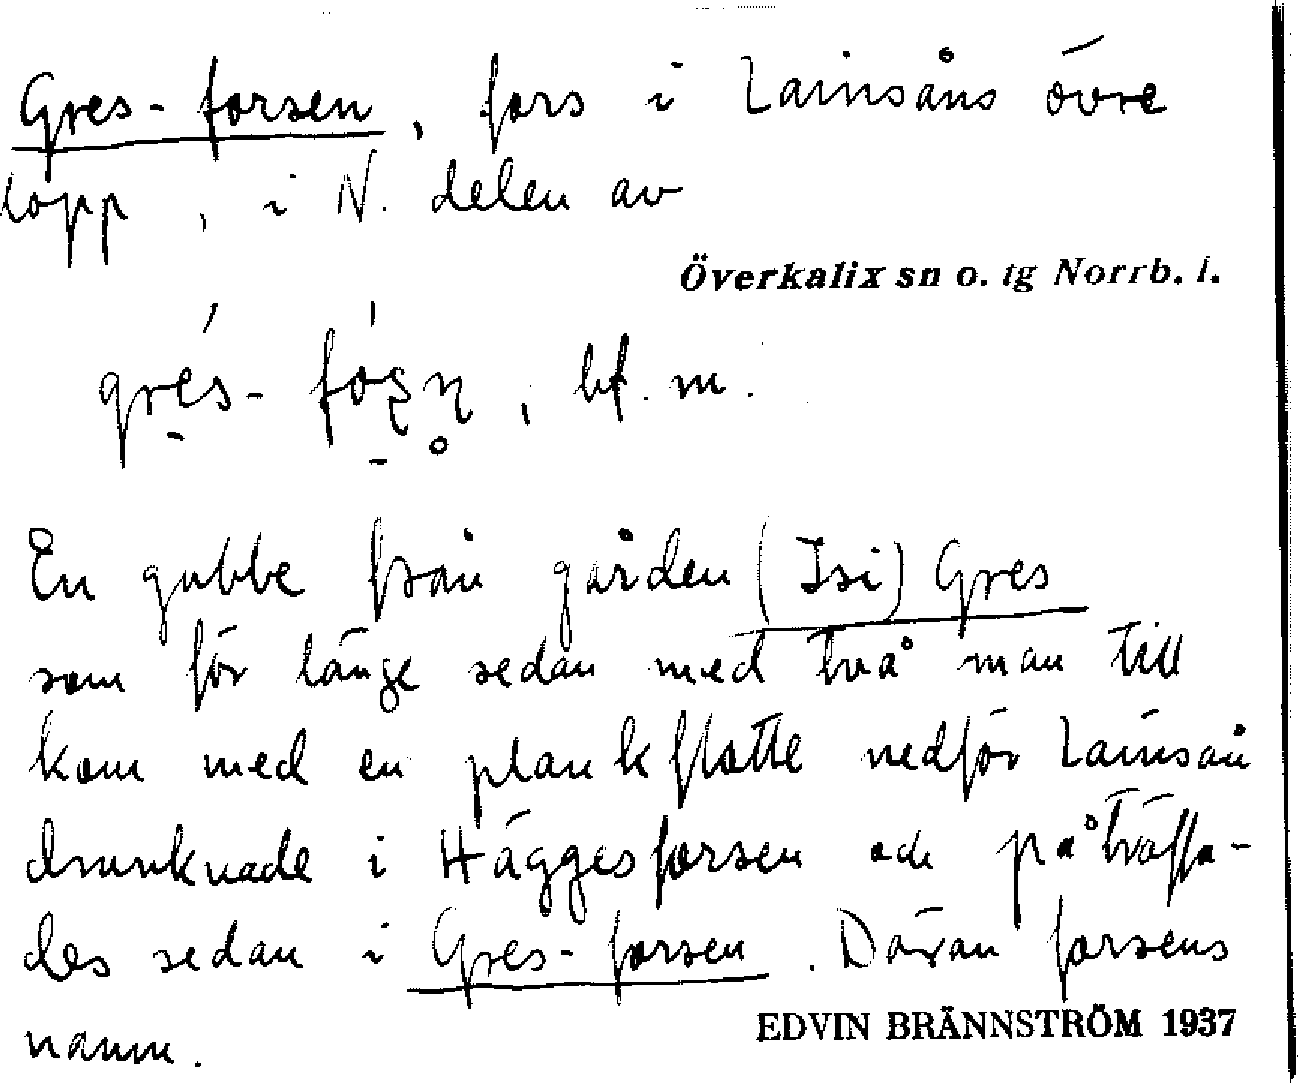 Gres-forsen, fors i Lainsåns övre
lopp, i N. delen av
Överkalix sn o. tg Norrb. l.
grés-fo̱ṣṇ̥, bf. m.
En gubbe från gården (Isi) Gres
som för länge sedan med två man till
kom med en plankflotte nedför Lainsån
drunknade i Häggesforsen och påträffa-
des sedan i Gres-forsen. Därav forsens
namn.
EDVIN BRÄNNSTRÖM 1937